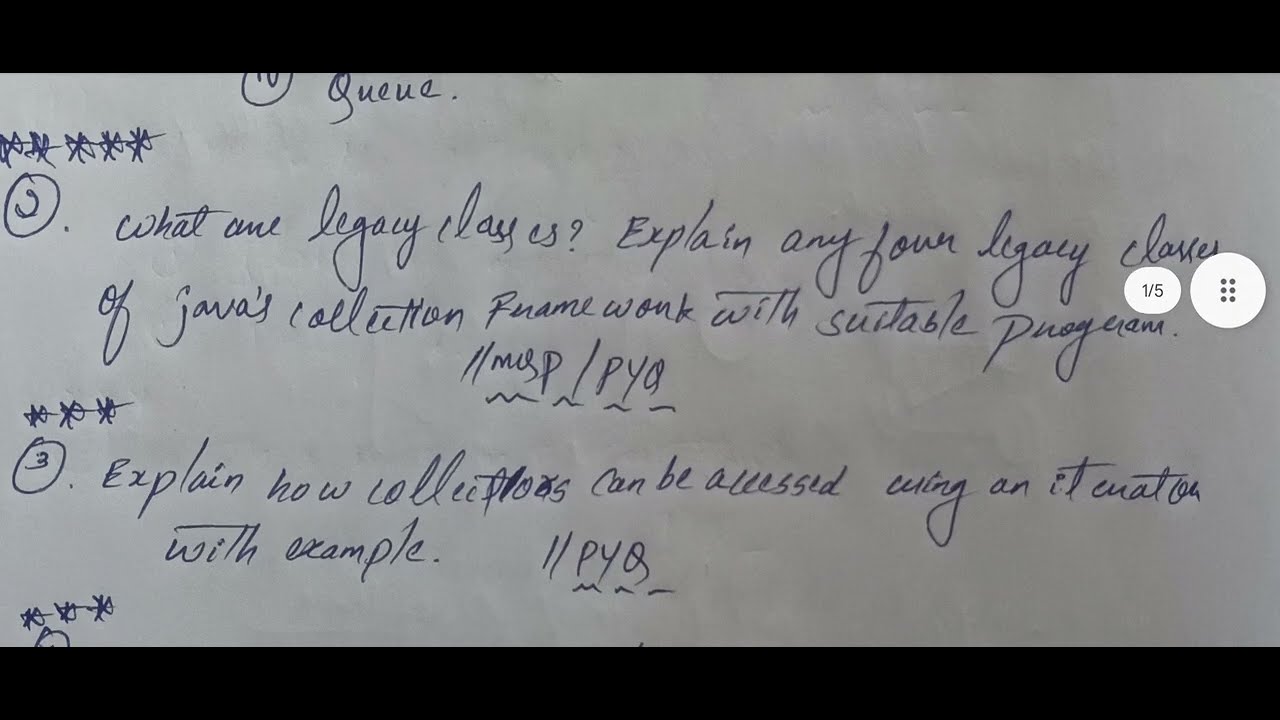 (iv) Queue.
2. What are legacy classes? Explain any four legacy classes
of java's collection Framework with suitable program.
//MQP / PYQ
1/5
3. Explain how collections can be accessed using an iterator
with example. //PYQ